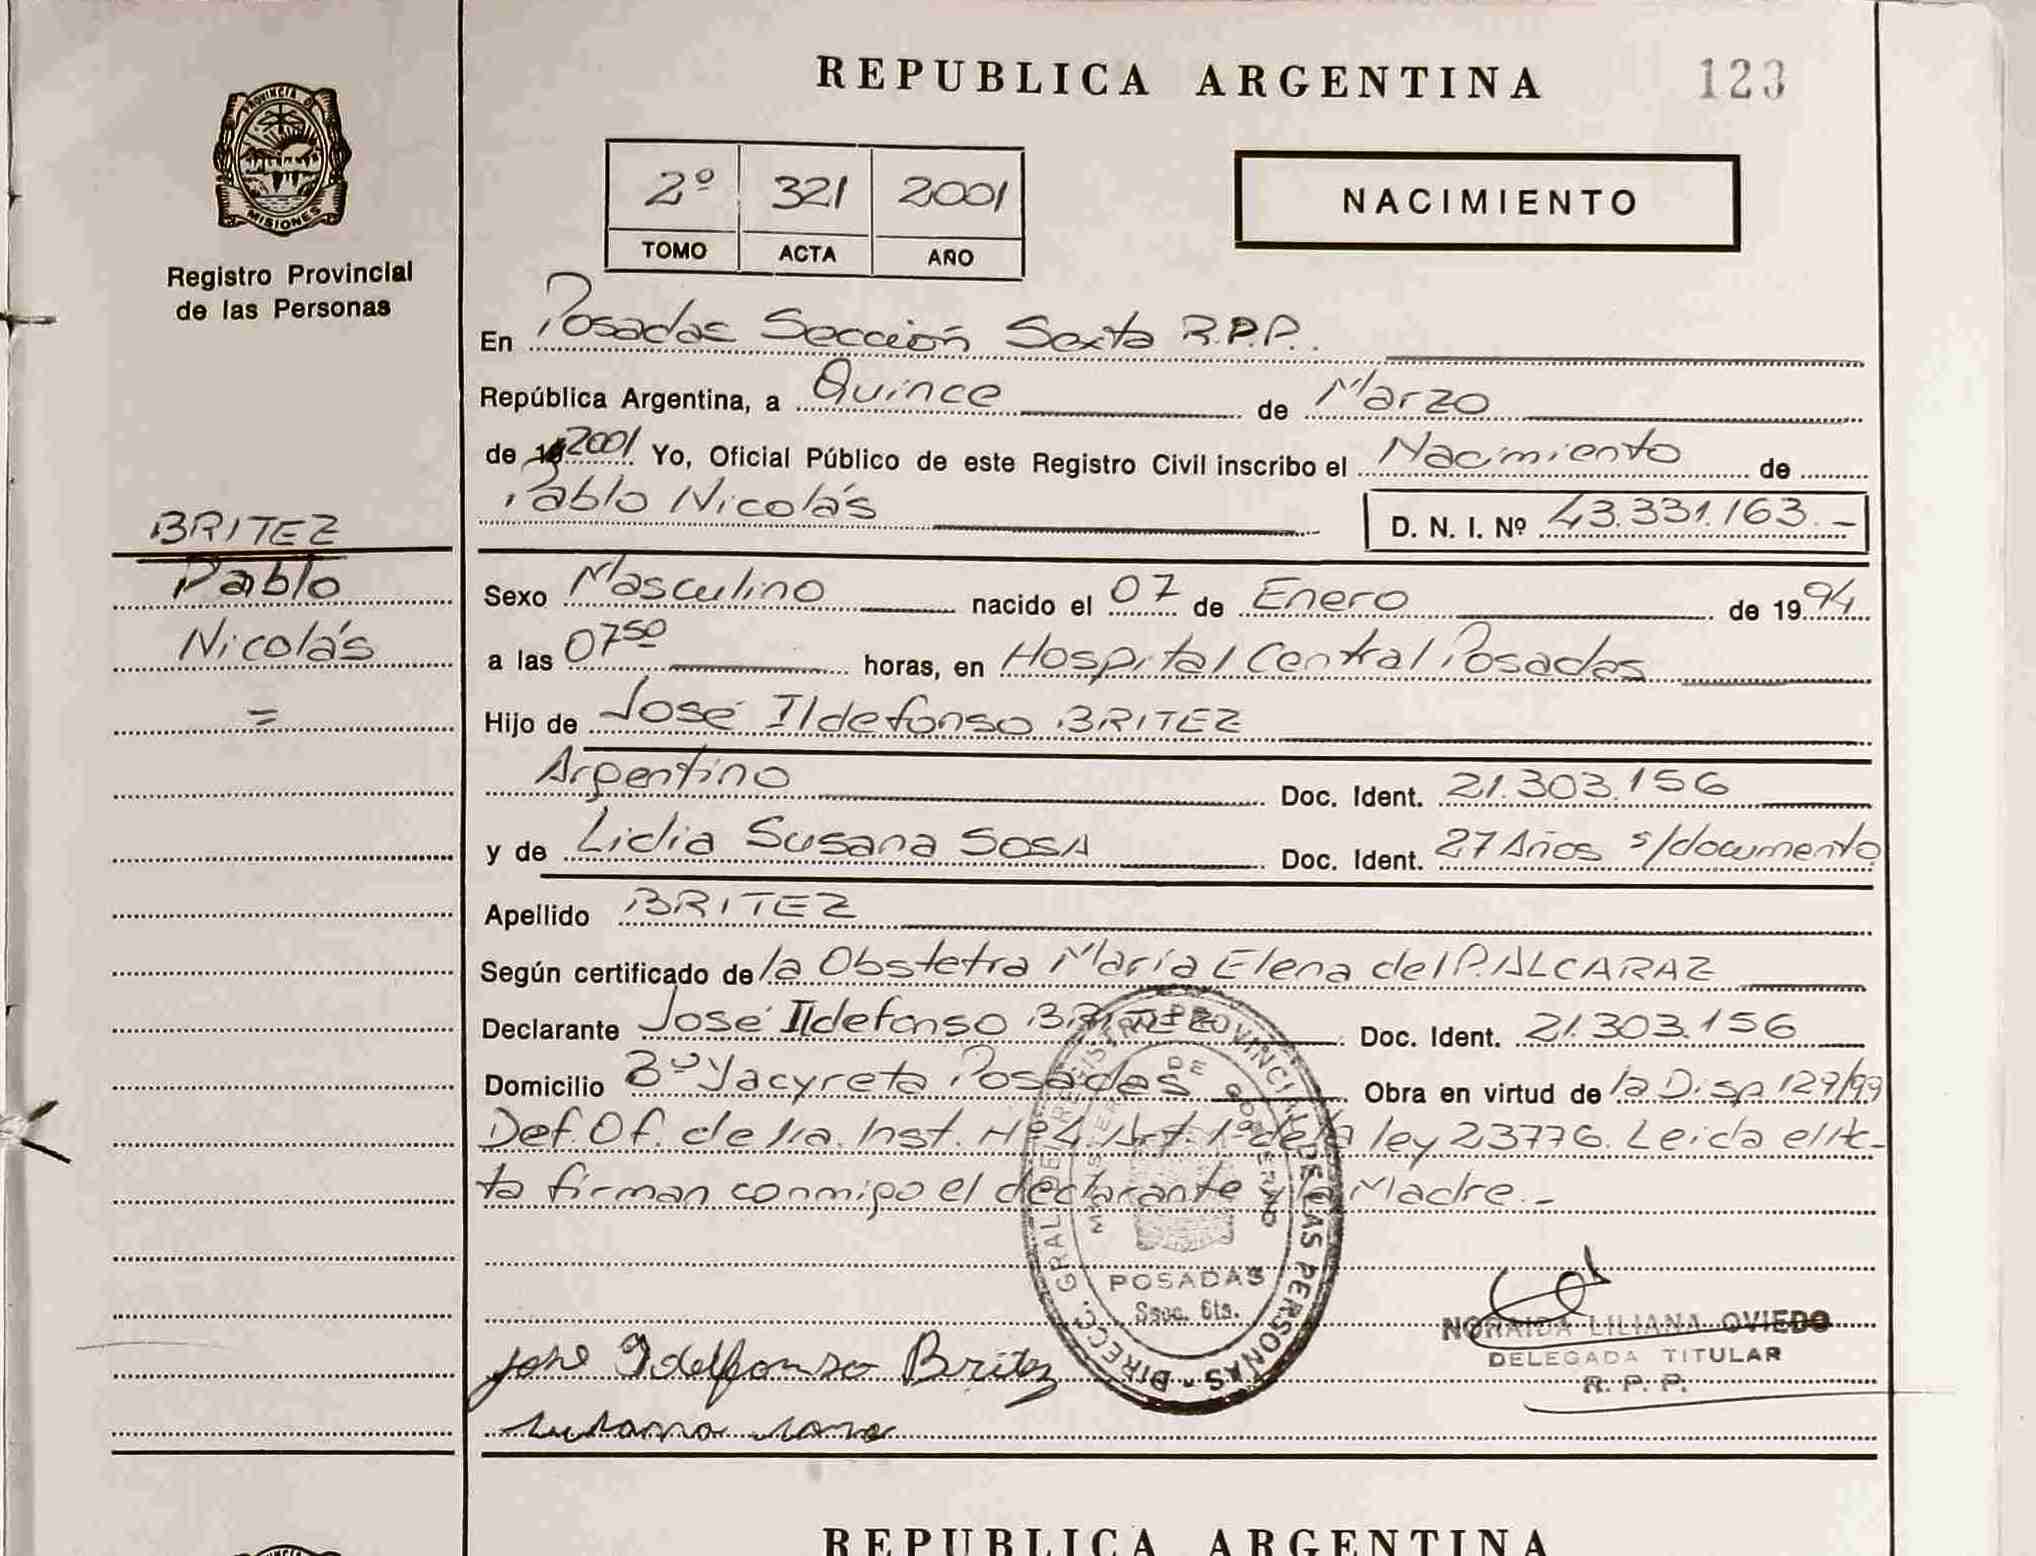 REPUBLICA ARGENTINA
123
PROVINCIA DE
MISIONES
Registro Provincial
de las Personas
2º 321 2001
TOMO ACTA AÑO
NACIMIENTO
En Posadas Sección Sexta R.P.P.
República Argentina, a Quince de Marzo
de 2001 Yo, Oficial Público de este Registro Civil inscribo el Nacimiento de
Pablo Nicolás D. N. I. Nº 43.331.163.-
BRITEZ
Pablo
Nicolás
=
Sexo Masculino nacido el 07 de Enero de 1994
a las 07 50 horas, en Hospital Central Posadas
Hijo de José Ildefonso BRITEZ
Argentino Doc. Ident. 21.303.156
y de Lidia Susana SOSA Doc. Ident. 27 Años s/documento
Apellido BRITEZ
Según certificado de la Obstetra María Elena del P. ALCARAZ
Declarante José Ildefonso BRITEZ Doc. Ident. 21.303.156
Domicilio Bº Yacyreta Posadas Obra en virtud de la Disp 129/99
Def. Of. de 1ra. Inst. Nº 4. Art. 1º de la ley 23776. Leida el Ac-
ta firman conmigo el declarante y la Madre.-
DIRECC. GRAL. DE REGISTRO PROVINCIAL DE LAS PERSONAS
MINISTERIO DE GOBIERNO
POSADAS
Secc. 6ta.
NORAIDA LILIANA OVIEDO
DELEGADA TITULAR
R. P. P.
José Idelfonso Britez
Susana Sosa
REPUBLICA ARGENTINA